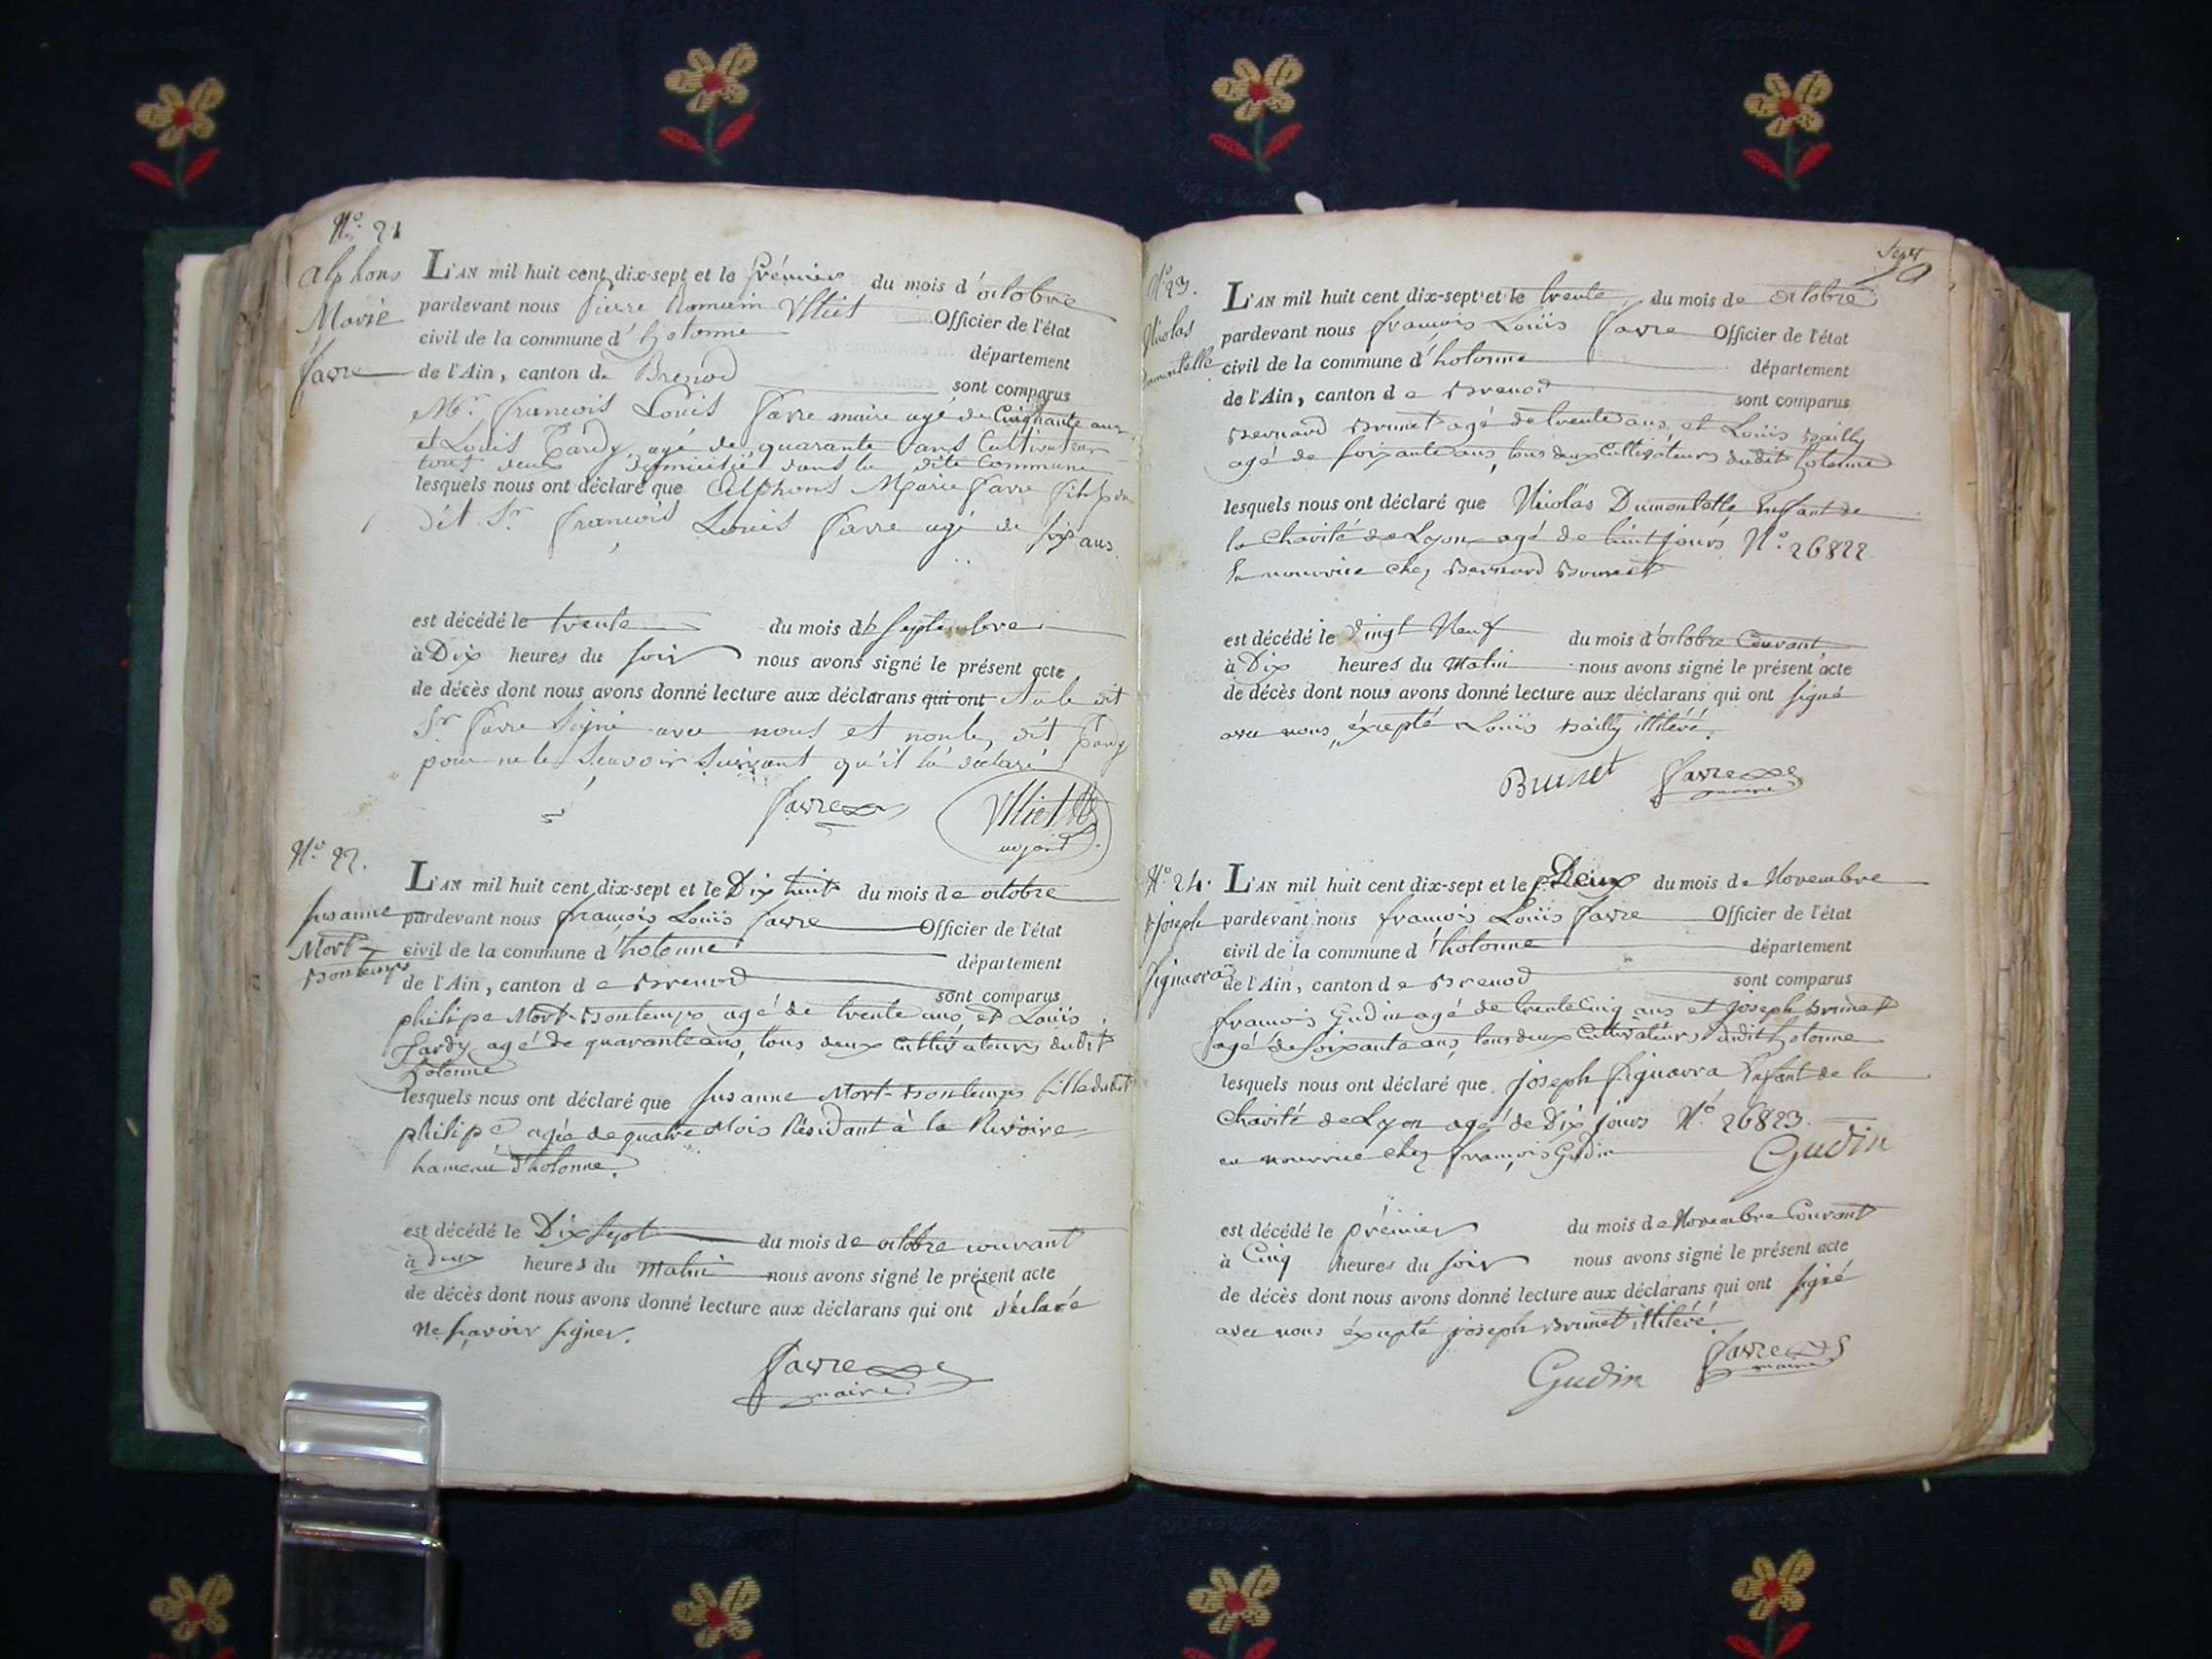 N.o 21
Alphons
Marie
favre
L'AN mil huit cent dix-sept et le Prémier du mois d'octobre
pardevant nous Pierre Romain Ulliet Officier de l'état
civil de la commune d'hotonne département
de l'Ain, canton de Brenod sont comparus
Mr. francois Louis favre maire agé de Cinquante ans
et Louis Tardy agé de quarante ans Cultivateur
tout deux domicilié dans la dite Commune
lesquels nous ont déclaré que Alphons Marie favre fils du
dit Sr. francois Louis favre agé de six ans.
est décédé le trente du mois de septembre
à Dix heures du soir nous avons signé le présent acte
de décès dont nous avons donné lecture aux déclarans qui ont le dit
Sr favre Signé avec nous et non le dit Tardy
pour ne le Scavoir Suivant qu'il la déclaré
favre Ulliet
adjoint
N.o 22.
susanne
Mort-
Bontemps
L'AN mil huit cent dix-sept et le Dix huit du mois de octobre
pardevant nous françois Louïs favre Officier de l'état
civil de la commune d'hotonne département
de l'Ain, canton de Brenod sont comparus
philipe Mort-Bontemps agé de trente ans et Louïs
Tardy agé de quarante ans, tous deux Cultivateurs dudit
hotonne
lesquels nous ont déclaré que susanne Mort-Bontemps fille dudit
philipe agée de quatre Mois Résidant à la Rivoire
hameau d'hotonne.
est décédé le Dix sept du mois de octobre courant
à deux heures du Matin nous avons signé le présent acte
de décès dont nous avons donné lecture aux déclarans qui ont déclaré
ne sçavoir signer.
favre
maire
Sept
N.o 23.
Nicolas
Dumontelle
L'AN mil huit cent dix-sept et le trente du mois de octobre
pardevant nous françois Louïs favre Officier de l'état
civil de la commune d'hotonne département
de l'Ain, canton de Brenod sont comparus
Bernard Brunet agé de trente ans et Louïs Bailly
agé de soixante ans, tous deux Cultivateurs dudit hotonne
lesquels nous ont déclaré que Nicolas Dumontelle Enfant de
la Charité de Lyon agé de huit jours N.o 26822
En nourrice chez Bernard Brunet
est décédé le vingt Neuf du mois d'octobre Courant
à Dix heures du Matin nous avons signé le présent acte
de décès dont nous avons donné lecture aux déclarans qui ont signé
avec nous, éxcepté Louïs Bailly illitéré.
Brunet favre
maire
N.o 24.
joseph
figuarra
L'AN mil huit cent dix-sept et le Deux du mois de Novembre
pardevant nous françois Louïs favre Officier de l'état
civil de la commune d'hotonne département
de l'Ain, canton de Brenod sont comparus
françois Gudin agé de trente Cinq ans et joseph Brunet
agé de soixante ans, tous deux Cultivateurs dudit hotonne
lesquels nous ont déclaré que joseph figuarra Enfant de la
Charité de Lyon agé de Dix jours N.o 26823.
en nourrice chez françois Gudin Gudin
est décédé le prémier du mois de Novembre Courant
à Cinq heures du soir nous avons signé le présent acte
de décès dont nous avons donné lecture aux déclarans qui ont signé
avec nous éxcepté joseph Brunet illitéré.
Gudin favre
maire